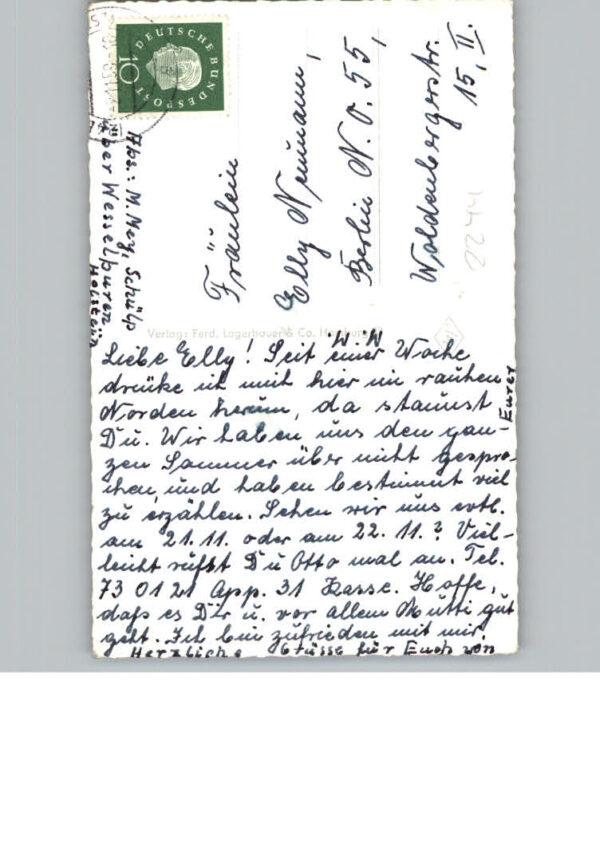 DEUTSCHE BUNDESPOST
10
Abs.: M. Mey, Schülp
über Wesselburen
Holstein
Fräulein
Elly Neumann,
Berlin N.O. 55,
Woldenbergerstr.
15, II.
2244
Verlag: Ferd. Lagerbauer & Co. Hamburg
Liebe Elly! Seit einer Woche
drücke ich mich hier im rauhen
Norden herum, da staunst
Du. Wir haben uns den gan-
zen Sommer über nicht gespro-
chen und haben bestimmt viel
zu erzählen. Sehen wir uns evtl.
am 21.11. oder am 22.11.? Viel-
leicht rufst Du Otto mal an. Tel.
73 01 21 App. 31 Kasse. Hoffe,
daß es Dir u. vor allem Mutti gut
geht. Ich bin zufrieden mit mir.
Herzliche Grüsse für Euch von
Eurer